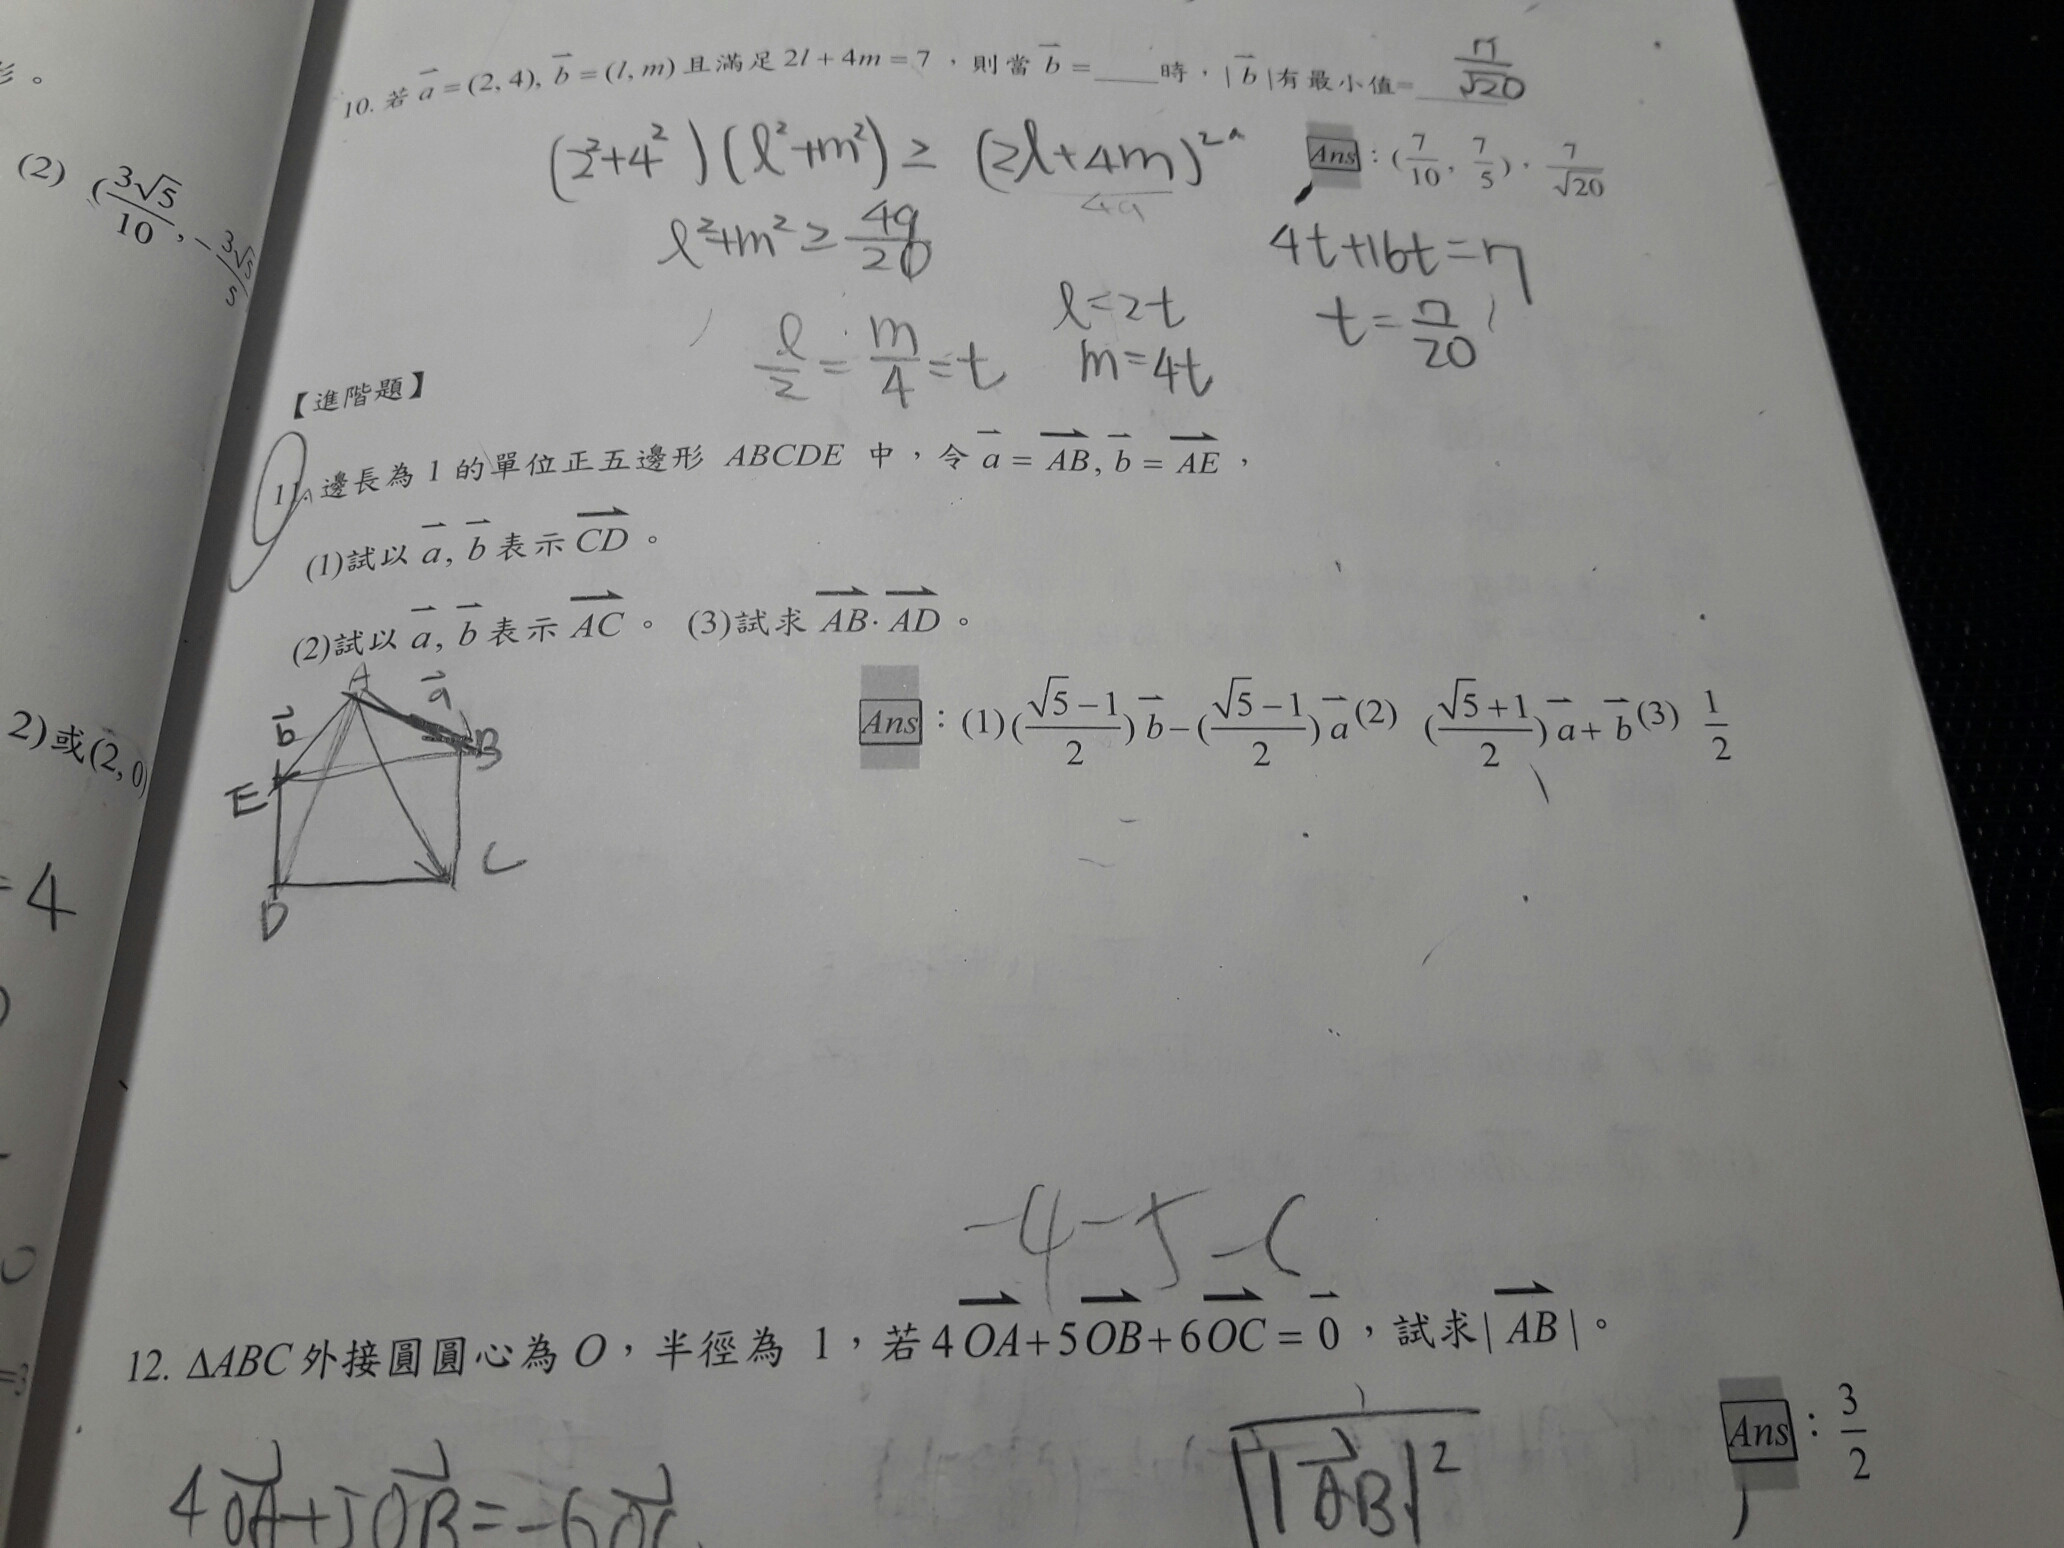 (2) (3√5/10, -3√5/5)
2)或(2, 0)
=4
10. 若 a⃗ = (2, 4), b⃗ = (l, m) 且滿足 2l + 4m = 7 ，則當 b⃗ = ____ 時，| b⃗ |有最小值= 7/√20
(2²+4²)(l²+m²) ≥ (2l+4m)²
49
Ans：(7/10, 7/5)．7/√20
l²+m² ≥ 49/20
4t+16t=7
l/2 = m/4 = t
l=2t
m=4t
t=7/20
【進階題】
11. 邊長為 1 的單位正五邊形 ABCDE 中，令 a⃗ = AB⃗, b⃗ = AE⃗，
(1)試以 a⃗, b⃗ 表示 CD⃗。
(2)試以 a⃗, b⃗ 表示 AC⃗。 (3)試求 AB⃗·AD⃗。
A a⃗
b⃗ B
E
C
D
Ans：(1)((√5−1)/2) b⃗−((√5−1)/2) a⃗ (2) ((√5+1)/2) a⃗+ b⃗ (3) 1/2
-4-5-6
12. ΔABC 外接圓圓心為 O，半徑為 1，若 4OA⃗+5OB⃗+6OC⃗ = 0⃗，試求| AB⃗ |。
Ans：3/2
4OA⃗+5OB⃗=-6OC⃗
√|AB⃗|²